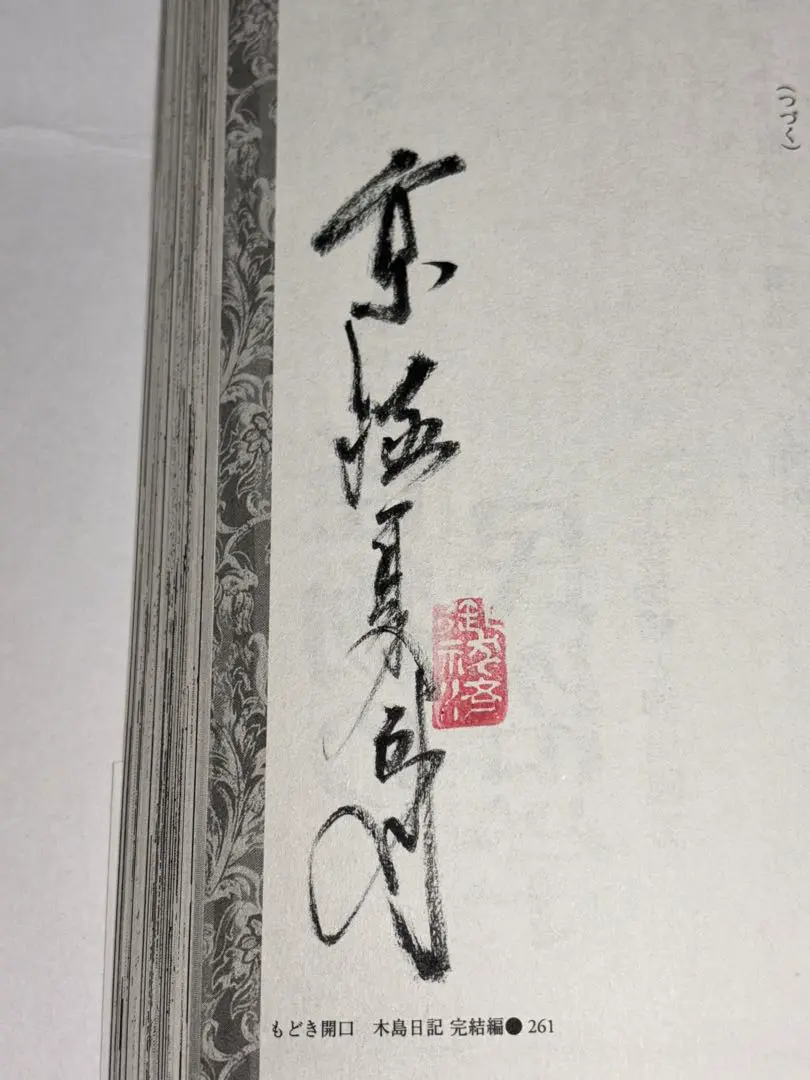 (つづく)
京極夏彦
もどき開口　木島日記 完結編● 261